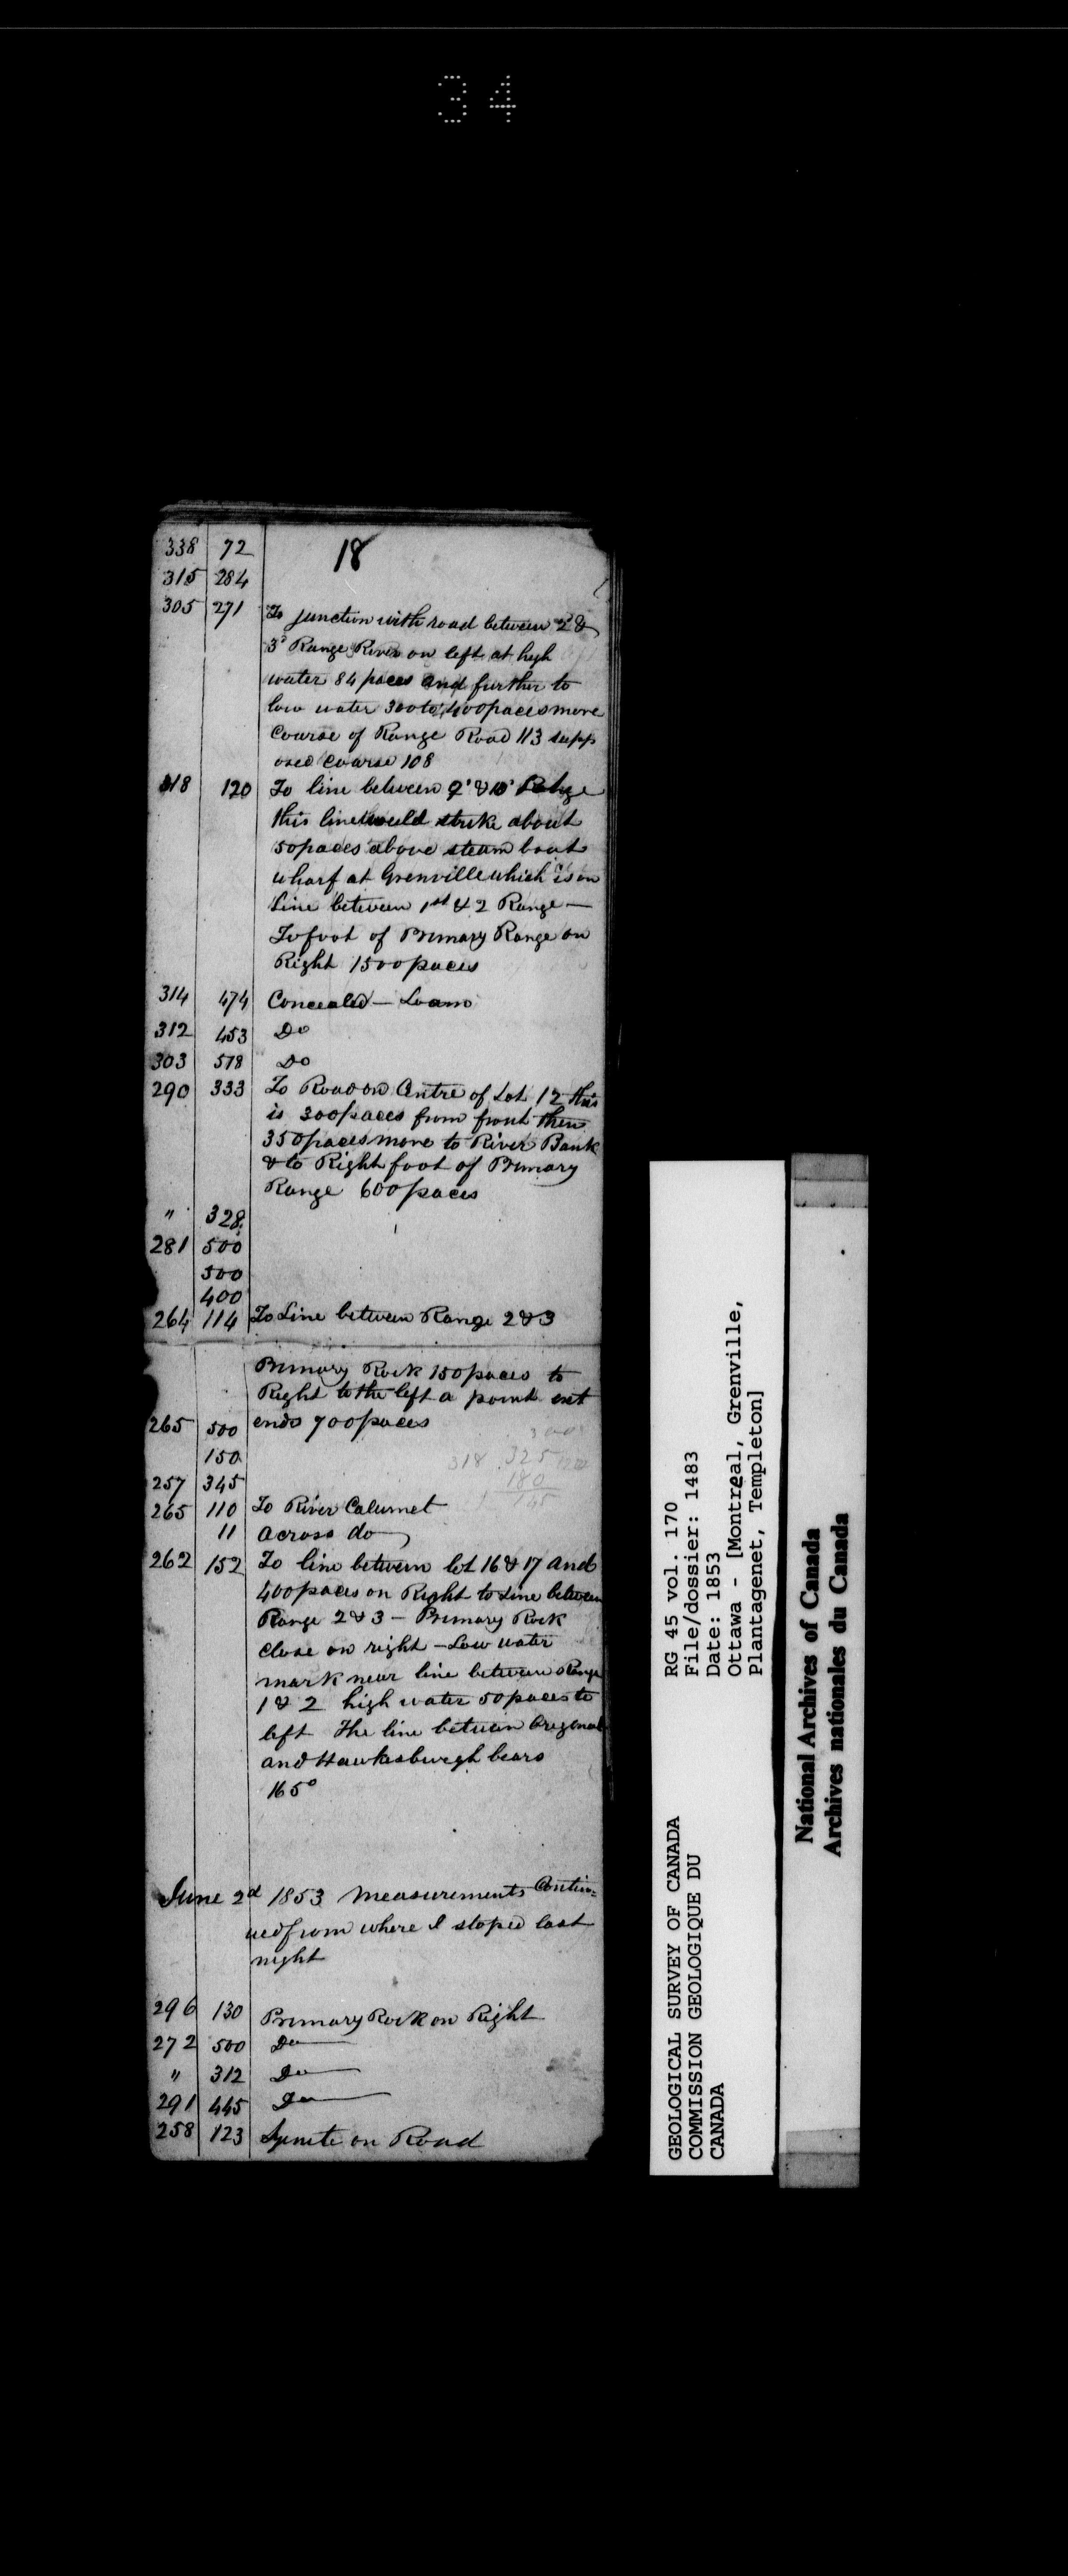 34
18
338 72
315 284
305 271 To junction with road between 2 &
3d Range River on left at high
water 84 paces and further to
low water 300 to 400 paces more
Course of Range Road 113 supp
osed course 108
318 120 To line between 9' & 10' Range
this line would strike about
50 paces above steam boat
wharf at Grenville which is on
Line between 1st & 2 Range —
To foot of Primary Range on
Right 1500 paces
314 474 Concealed — Loam
312 453 Do
303 578 Do
290 333 To Road on Centre of Lot 12 this
is 300 paces from front then
350 paces more to River Bank
& to Right foot of Primary
Range 600 paces
" 328
281 500
500
400
264 114 To Line between Range 2 & 3
Primary Rock 150 paces to
Right to the left a point ext
265 500 ends 700 paces
150
318 325
180
145
257 345
265 110 To River Calumet
11 across do
262 152 To line between lot 16 & 17 and
400 paces on Right to Line between
Range 2 & 3 — Primary Rock
close on right — Low water
mark near line between Range
1 & 2 high water 50 paces to
left The line between Original
and Hawkesburgh bears
165°
June 2d 1853 Measurements Contin=
ued from where I stoped last
night
296 130 Primary Rock on Right
272 500 Do
" 312 Do
291 445 Do
258 123 Syenite on Road
GEOLOGICAL SURVEY OF CANADA
COMMISSION GEOLOGIQUE DU
CANADA
RG 45 vol. 170
File/dossier: 1483
Date: 1853
Ottawa - [Montreal, Grenville,
Plantagenet, Templeton]
National Archives of Canada
Archives nationales du Canada